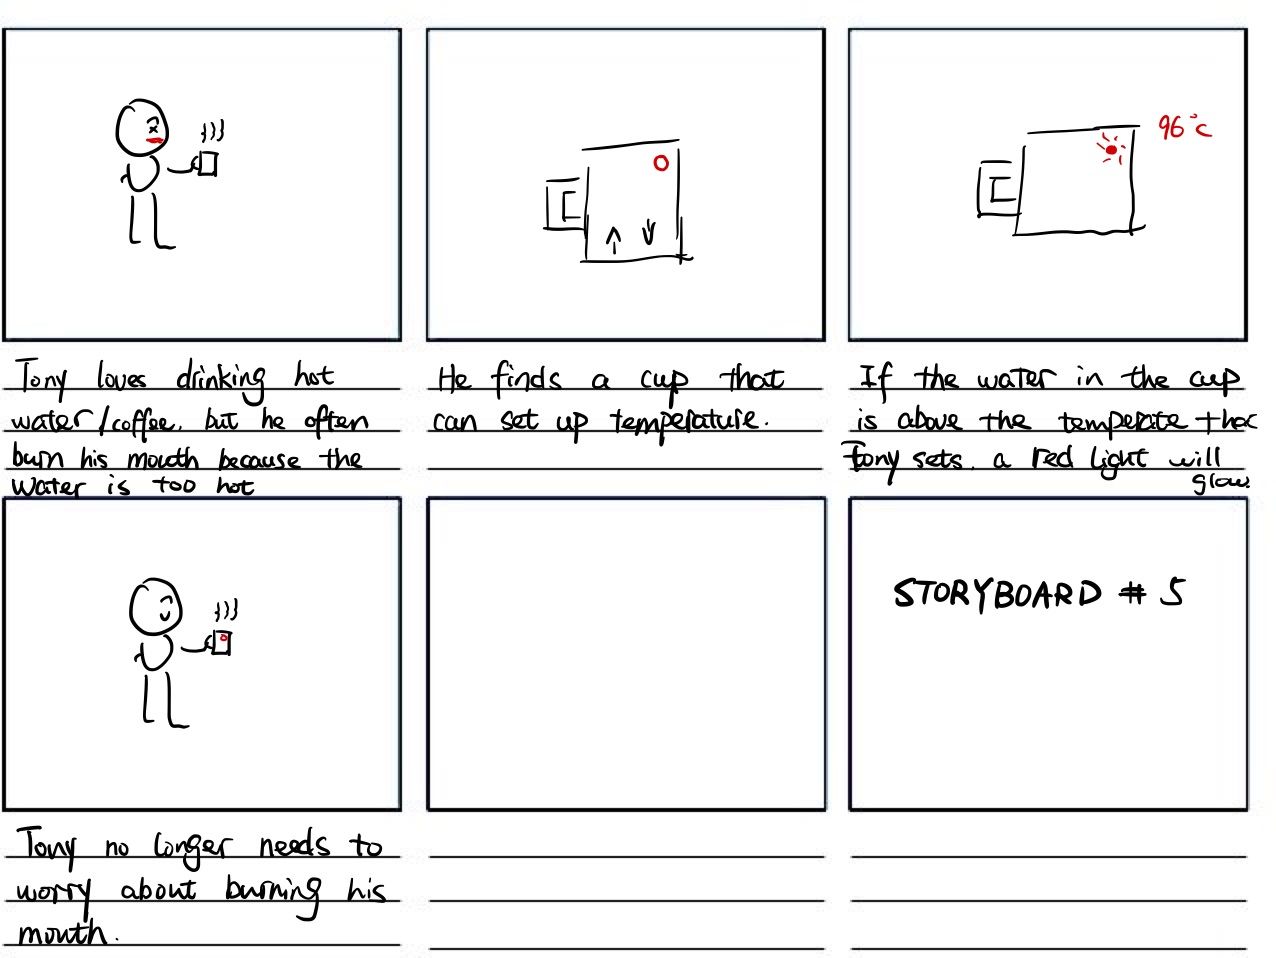 Tony loves drinking hot
water/coffee, but he often
burn his mouth because the
water is too hot
He finds a cup that
can set up temperature.
96°c
If the water in the cup
is above the temperate that
Tony sets, a red light will
glow.
Tony no longer needs to
worry about burning his
mouth.
STORYBOARD # 5